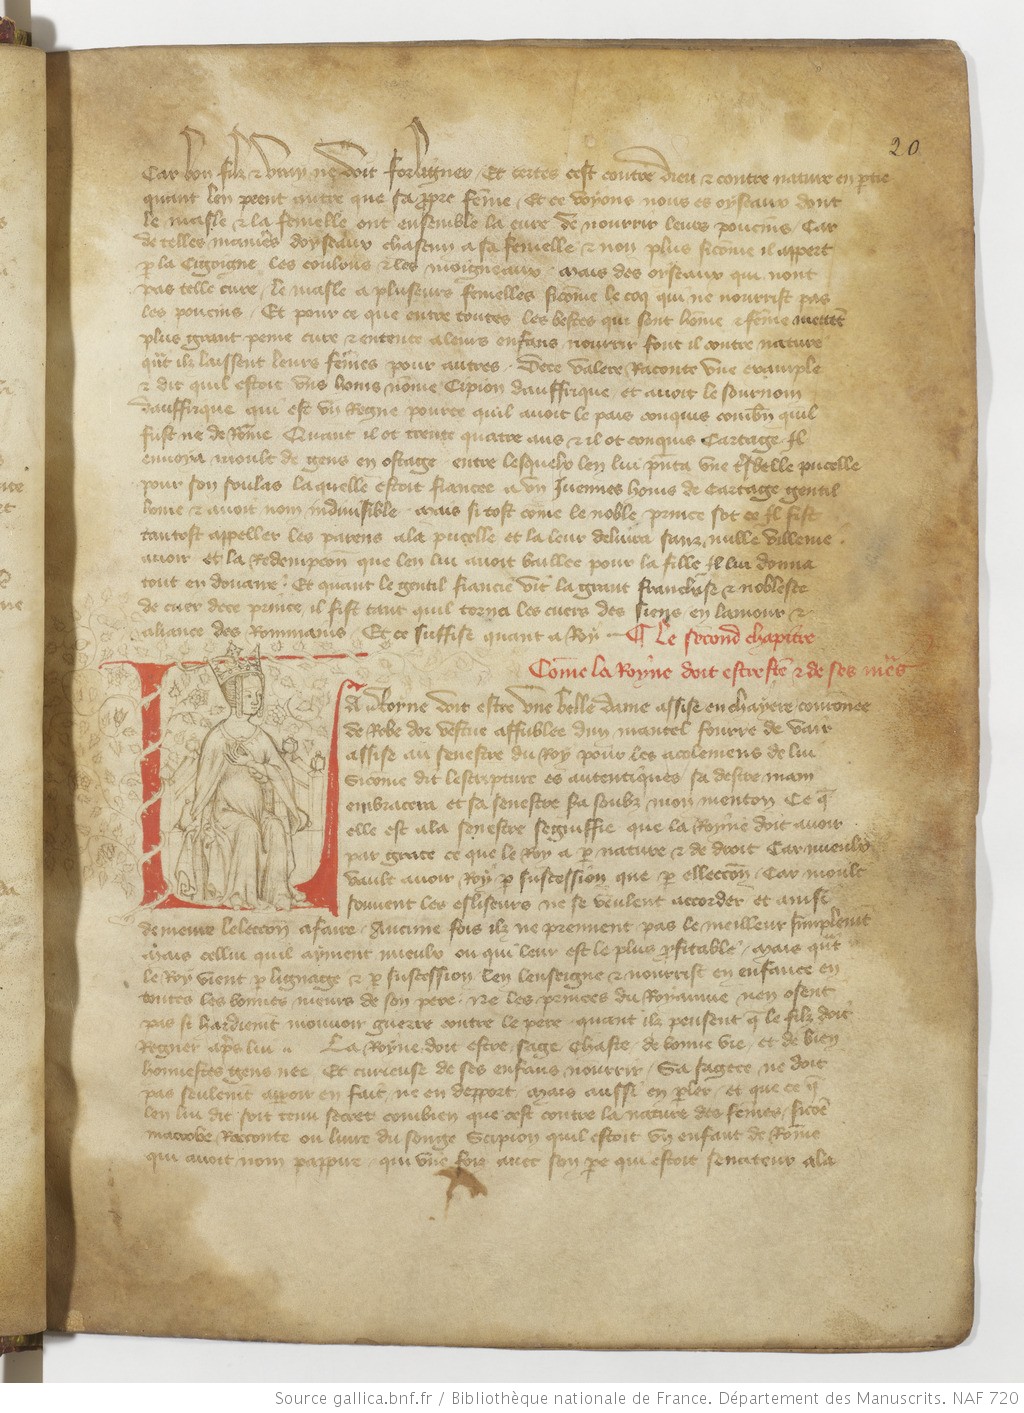 20
Car bon filz & vray ne doit forligner / Et certes cest contre dieu & contre nature en ptie
quant len prent autre que sa ppre fēme / Et ce voyons nous es oyseaux dont
le masle & la femelle ont ensemble la cure de nourrir leurs poucins / Car
de telles manies doyseaux chascun a sa femelle & non plus sicōme il appert
p la Cigoigne les coulons & les moigneaux . Mais des oyseaux qui nont
pas telle cure / le masle a pluseurs femelles sicōme le coq qui ne nourrist pas
les poucins / Et pour ce que entre toutes les bestes qui sont hōme & fēme mettēt
plus grant peine cure & entente a leurs enfans nourrir font il contre nature
qt ilz laissent leurs fēmes pour autres . Dece valere Raconte vne example
& dit quil estoit vns homs nōme Cipion dauffrique et auoit le sournom
dauffrique qui est vn Regne pource quil auoit le pais conquis combn quil
fust ne de Rōme Quant il ot trente quatre ans & il ot conquis Cartage Il
enuoya moult de gens en ostage entre lesquelx len lui pnta vne tsbelle pucelle
pour son soulas laquelle estoit fiancee a vn Juennes homs de Cartage gentil
home & auoit nom Indiuisible . Mais si tost cōme le noble prince sot ce Il fist
tantost appeller les parens ala pucelle et la leur deliura sanz nulle villenie .
auoir et la Redempcion que len lui auoit baillee pour la fille Il lui donna
tout en douaire . Et quant le gentil fiancie vit la grant franchise & noblesce
de cuer dece prince il fist tant quil torna les cuers des siens en lamour &
aliance des Rommains . Et ce suffise quant a Roy ¶ Le second chapitre
Cōme la Royne doit estre fce & de ses mes
LA Royne doit estre vne belle dame assise en chayere couronee
de Robe dor vestue affublee dun mantel fourre de vair
assise au senestre du Roy pour les acolemens de lui
Sicome dit lescripture es autentiques sa destre main
embracera et sa senestre sa soubz mon menton Ce q̄
elle est ala senestre segniffie que la Royne doit auoir
par grace ce que le Roy a p nature & de droit Car mieulx
vault auoir Roy p succession que p elleccōn . Car moult
souuent les esliseurs ne se veulent accorder et ainsi
demeure lelecōn afaire . Aucune fois ilz ne prennent pas le meilleur simplemēt
Mais cellui quil ayment mieulx ou qui leur est le plus pfitable . Mais qt
le Roy vient p lignage & p succession len lenseigne & nourrist en enfance en
toutes les bonnes meurs de son pere . Ne les princes du Royaume nen osent
pas si hardiemt mouuoir guerre contre le pere quant ilz pensent q̄ le filz doit
Regner aps lui .. La Royne doit estre sage chaste de bonne vie et de bien
honnestes gens nee Et curieuse de ses enfans nourrir / Sa sagece ne doit
pas seulemt apoir en fait ne en depport Mais aussi en pler / et que ce q̄
len lui dit soit tenu secret combien que cest contre la nature des fēmes / sicōe
macrobe Racconte ou liure du songe Scipion quil estoit vn enfant de Rōme
qui auoit nom pappire qui vne fois auec son pe qui estoit senateur ala